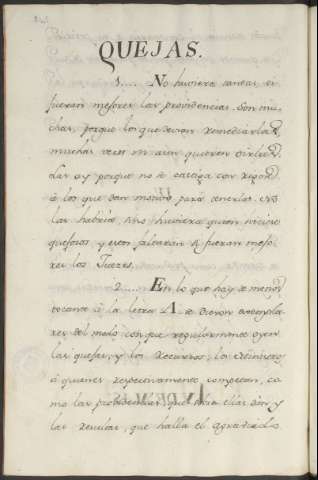 QUEJAS.
1.... No huviera tantas, si
fueran mejores las providencias. Son mu
chas, porque los que devian remediarlas,
muchas veces ni aun quieren oirlas.
Las ay porque no se castiga con rigor
à los que dan motivo para tenerlas. No
las habria, sino huviera quien hiciese
quejosos, y estos faltaran si fueran mejo
res los Jueces.
2.... En lo que hay de menos
tocante à la letra A. se dieron
del modo con que regularmente oyen
las quejas, y los recursos, los Ministros
à quienes respectivamente competen, co
mo las providencias que à ellas dan y
las resultas, que halla el agraviado